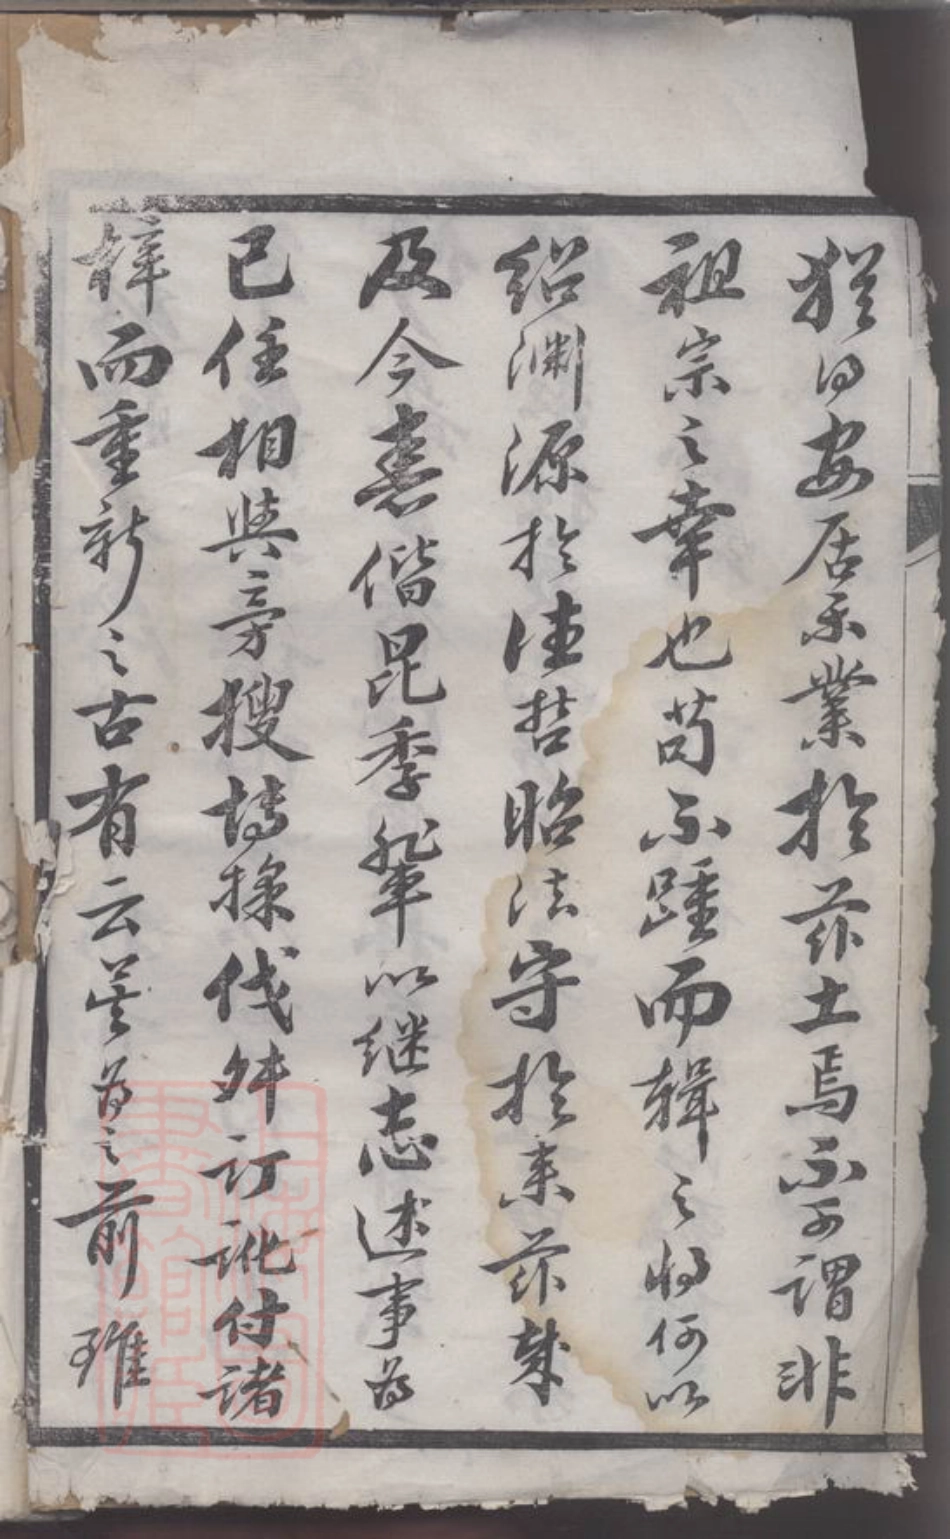 猶得安居樂業於茲土焉不可謂非
祖宗之幸也苟不踵而輯之將何以
紹淵源於往哲昭法守於來茲哉
及今喜偕昆季輩以継志述事為
已任相與旁搜博採伐舛訂訛付諸
梓而重新之古有云莫為之前雖
上海圖
書館藏